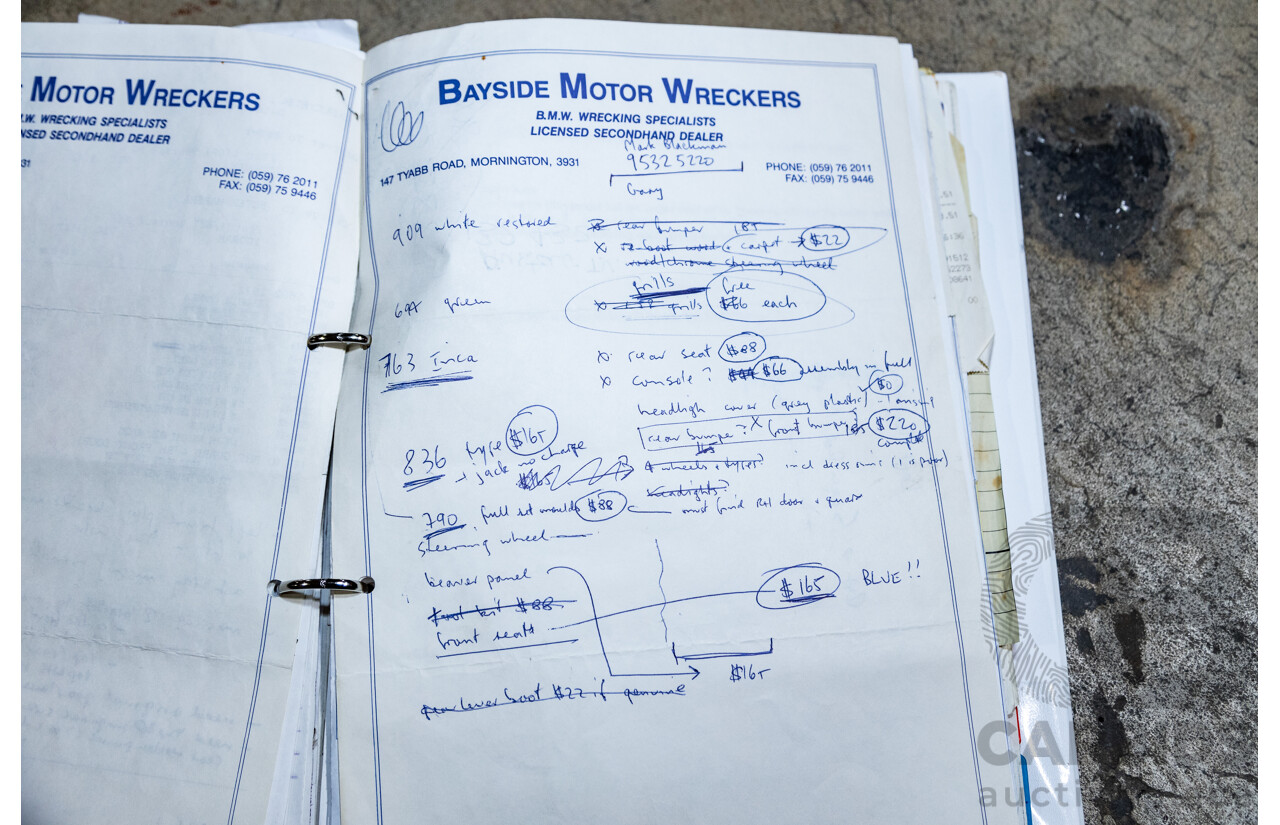 MOTOR WRECKERS
.W. WRECKING SPECIALISTS
NSED SECONDHAND DEALER
31
PHONE: (059) 76 2011
FAX: (059) 75 9446
BAYSIDE MOTOR WRECKERS
B.M.W. WRECKING SPECIALISTS
LICENSED SECONDHAND DEALER
Mark Blackman
9532 5220
147 TYABB ROAD, MORNINGTON, 3931
PHONE: (059) 76 2011
FAX: (059) 75 9446
Gary
909 white restored
x rear bumper 185
x boot wood + carpet $22
wood/chrome steering wheel
grills free
green x grills $66 each
763 Inca
x rear seat $88
x console? $66 assembly in full
headligh cover (grey plastic) $0
rear bumper? x front bumper $220
complete
836 type $165
+ jack no charge
$165
4 wheels + types? incl dress rims (1 is poor)
headlights?
790 full set moulds $88 must find RH door + quar
steering wheel
beaver panel
$165 BLUE!!
tool kit $88
front seats
$165
lever boot $22 if genuine